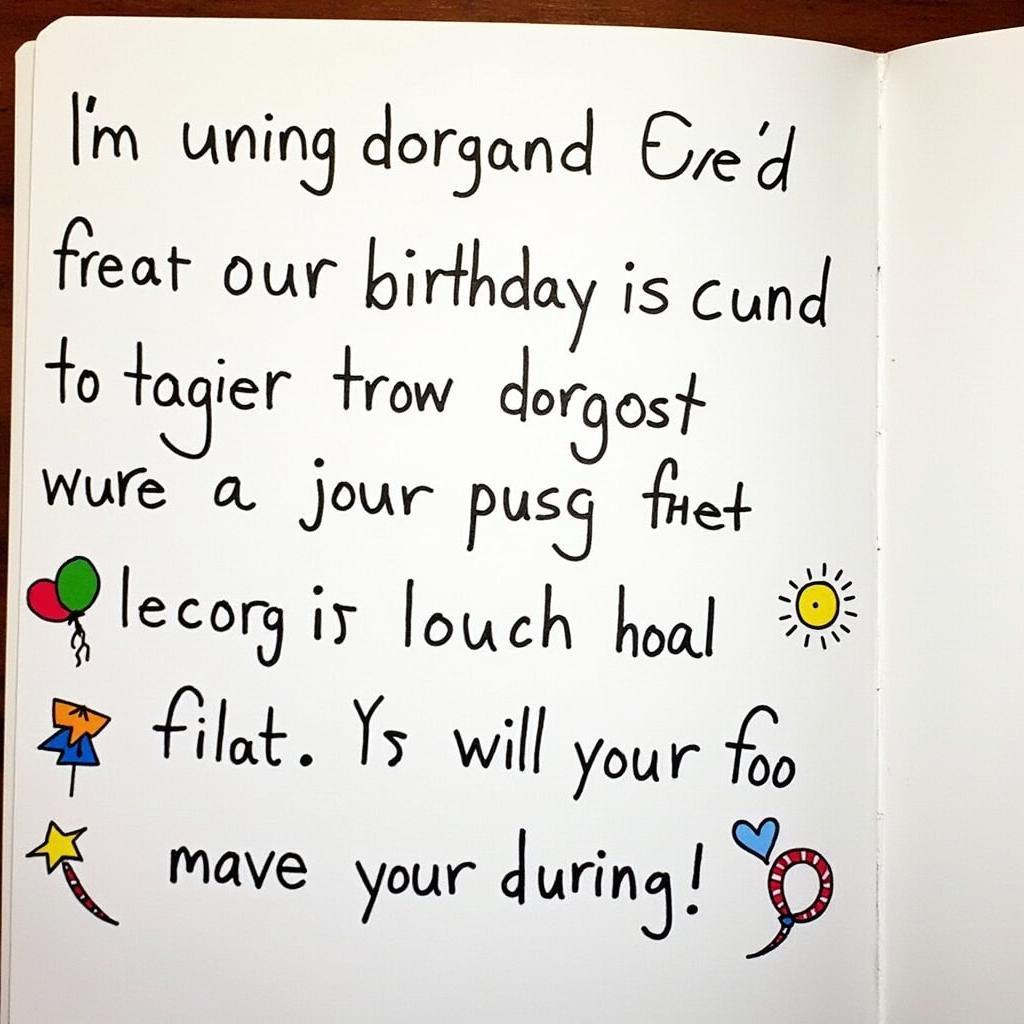 I'm uning dorgand Ere'd
freat our birthday is cund
to tagier trow dorgost
wure a jour pusg
lecorg is louch hoal
filat. Ys will your foo
mave your during!